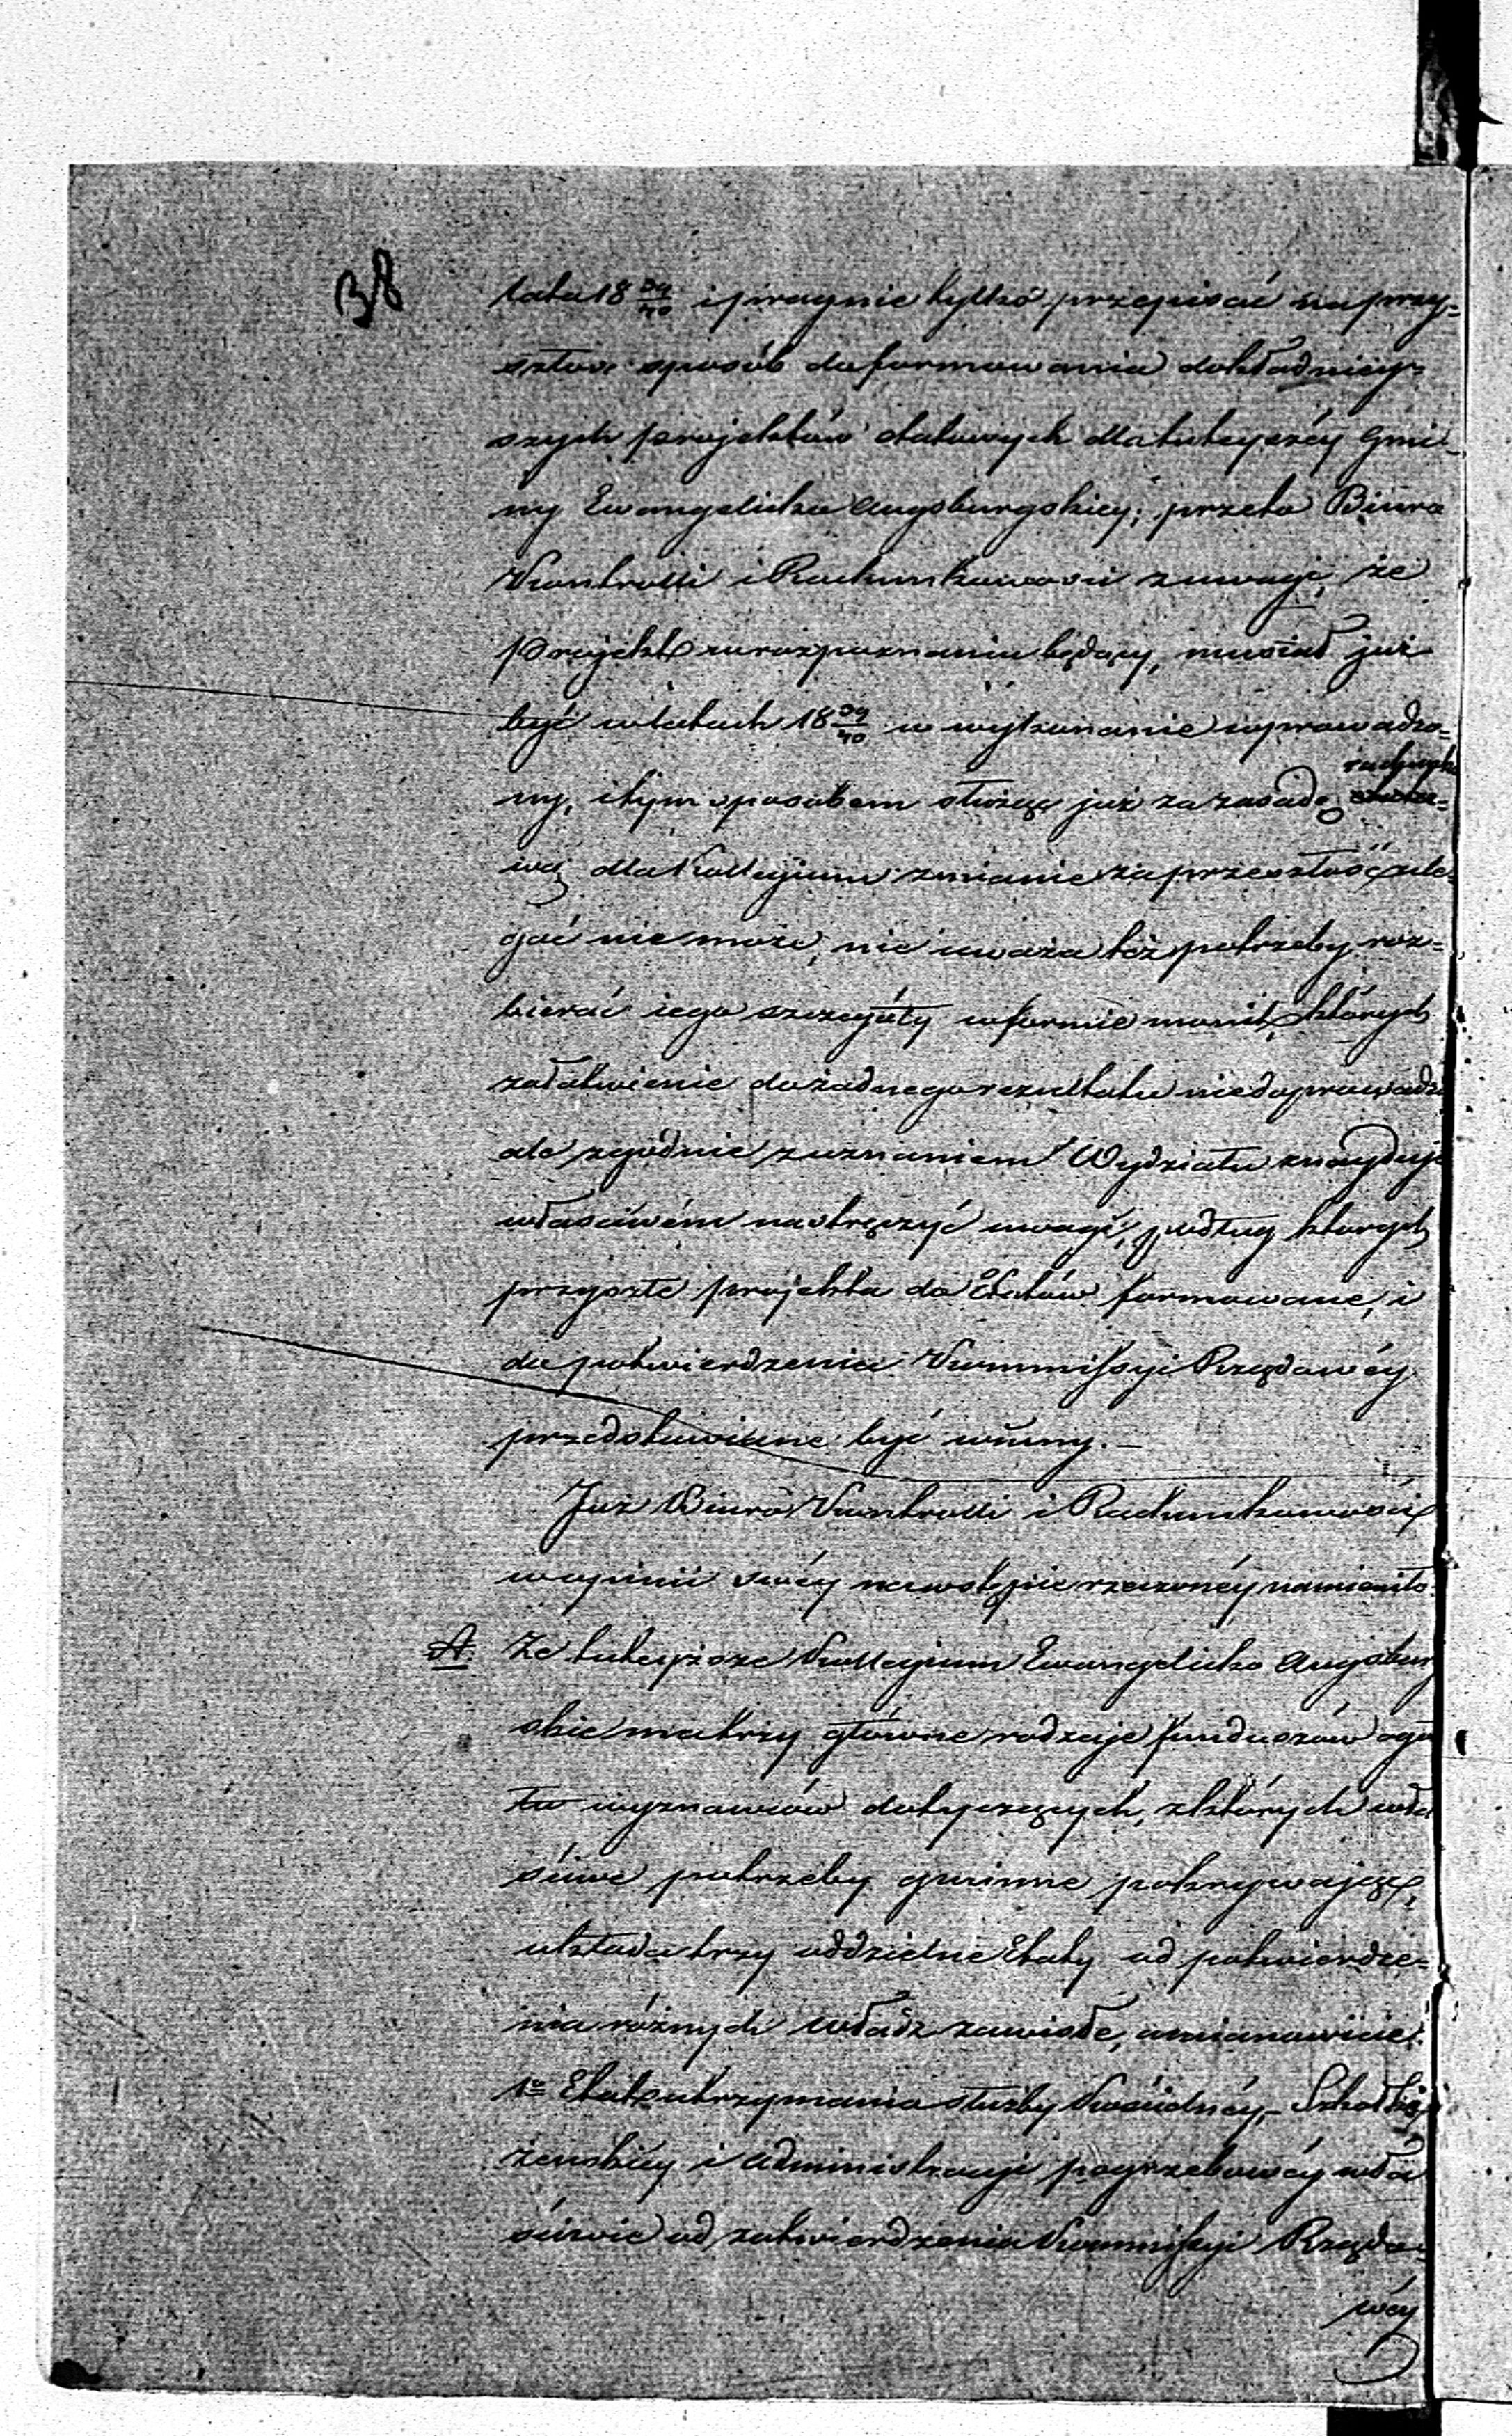 38
lata 18 39/40 i pragnie tylko przepisać na przy=
szłość sposób do formowania dokładniey=
szych projektów etatowych dla tuteyszéy Gmi=
ny Ewangelicko Augsburgskiey; przeto Biuro
Kontrolli i Rachunkowości z uwagi, że
projekt w rozpoznaniu będący, musiał już
być w latach 18 39/40 w wykonanie wprowadzo=
ny, i tym sposobem służąc już za zasadę rachunko
wą dla Kollegium zmianie za przeszłość ule=
gać nie może, nie uważa też potrzeby roz=
bierać iego szczegóły w formie monit, których
załatwienie do żadnego rezultatu niedoprowadzi
ale zgodnie z uznaniem Wydziału znayduje
właściwém nastręczyć uwagi, podług których
przyszłe projekta do Etatów formowane, i
do potwierdzenia Kommissyi Rządowéy
przedstawiane być winny. —
Już Biuro Kontrolli i Rachunkowości
w opinii swéy na wstępie rzeczonéy namieniło
A. Że tuteysze Kollegium Ewangelicko Augsburg
skie ma trzy główne rodzaje funduszów ogó
łu wyznawców dotyczących, z których wła
ściwe potrzeby gminne pokrywając,
układa trzy oddzielne Etaty od potwierdze=
nia różnych władz zawisłe, a mianowicie:
1o Etat utrzymania służby Kościelnéy, – Szkółki
żeńskiéy i administracyi pogrzebowéy wła
ściwie od zatwierdzenia Kommissyi Rządo=
wéy